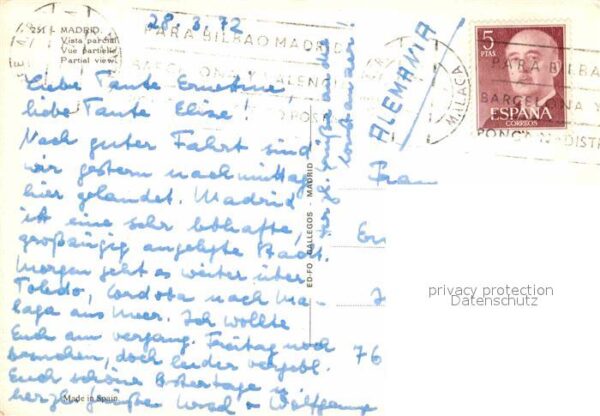 28.3.72
251 - MADRID.
Vista parcial
Vue partielle
Partial view
PARA BILBAO MADRID
BARCELONA Y VALENCIA
Liebe Tante Ernestine,
liebe Tante Elise!
Nach guter Fahrt sind
wir gestern nachmittag
hier gelandet. Madrid
ist eine sehr lebhafte,
großzügig angelegte Stadt.
Morgen geht es weiter über
Toledo, Cordoba nach Ma-
laga ans Meer. Ich wollte
Euch am vergang. Freitag noch
besuchen, doch leider vergebl.
Euch schöne Ostertage u.
herzl. Grüße
Wolfgang
Made in Spain
ED-FO GALLEGOS - MADRID
Herzl. Grüße an die
ALEMANIA
5
PTAS
ESPAÑA
CORREOS
PARA BILBA
BARCELONA Y
PONGA DISTR
Frau
76
privacy protection
Datenschutz